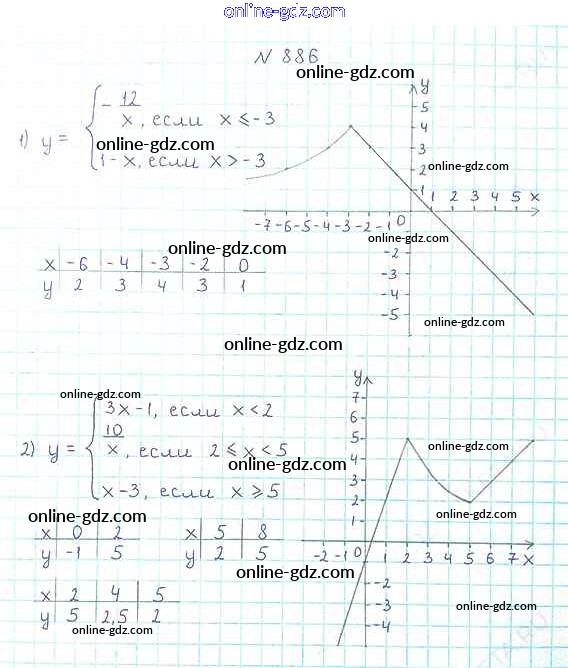 online-gdz.com
N 886
online-gdz.com
1) y = { - 12/x, если x ≤ -3
online-gdz.com
1 - x, если x > -3
y
5
4
3
2
1
online-gdz.com
1 2 3 4 5 x
-7 -6 -5 -4 -3 -2 -1 0
online-gdz.com
-2
-3
-4
-5
online-gdz.com
online-gdz.com
x -6 -4 -3 -2 0
y 2 3 4 3 1
online-gdz.com
online-gdz.com
2) y = { 3x - 1, если x < 2
10/x, если 2 ≤ x < 5
online-gdz.com
x - 3, если x ≥ 5
y
7
6
5
4
3
2
1
online-gdz.com
online-gdz.com
-2 -1 0 2 3 4 5 6 7 x
-2
-3
-4
online-gdz.com
online-gdz.com
x 0 2
y -1 5
x 5 8
y 2 5
online-gdz.com
x 2 4 5
y 5 2,5 2
online-gdz.com